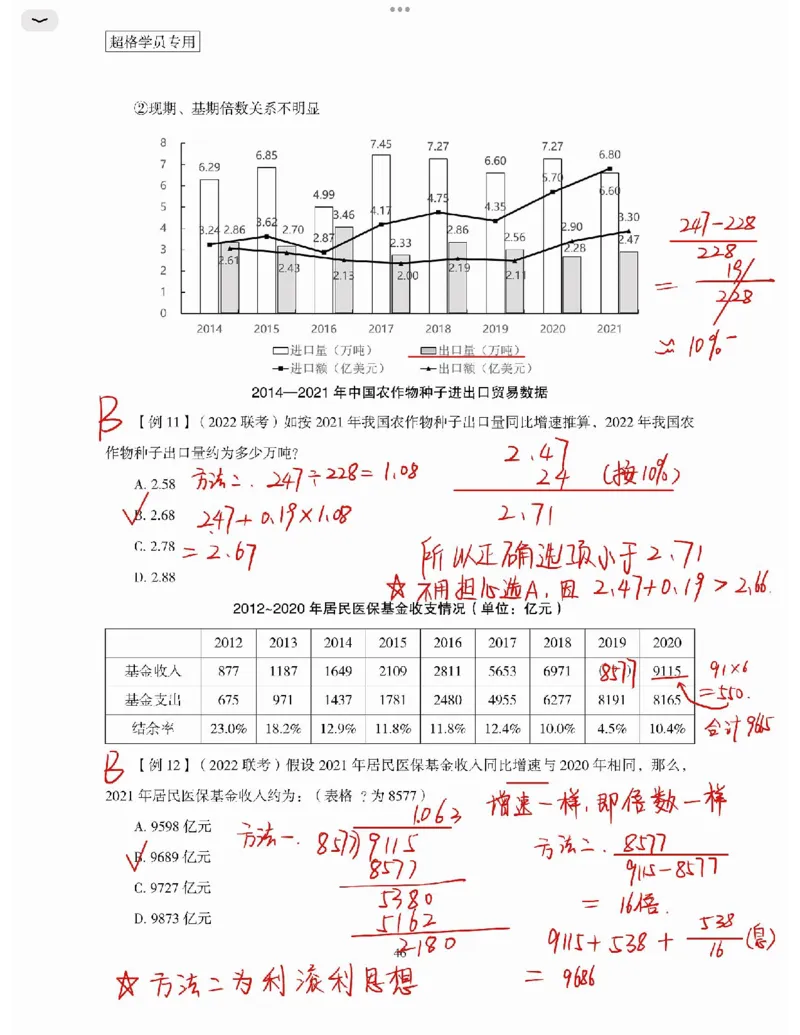 超格学员专用
②现期、基期倍数关系不明显
8
7
6
5
4
3
2
1
0
6.29
6.85
4.99
7.45
7.27
6.60
7.27
6.80
3.24
2.86
3.62
2.70
2.87
3.46
4.17
2.33
4.75
2.86
4.35
2.56
5.70
2.90
2.28
6.60
3.30
2.47
2.61
2.43
2.13
2.00
2.19
2.11
2014 2015 2016 2017 2018 2019 2020 2021
进口量（万吨） 出口量（万吨）
进口额（亿美元） 出口额（亿美元）
247-228
228
= 19
228
≈ 10%-
2014—2021 年中国农作物种子进出口贸易数据
B 【例 11】（2022 联考）如按 2021 年我国农作物种子出口量同比增速推算，2022 年我国农
作物种子出口量约为多少万吨？
A. 2.58
B. 2.68
C. 2.78
D. 2.88
方法二. 247÷228=1.08
247+0.19×1.08
=2.67
2.47
24 (按10%)
2.71
所以正确选项小于2.71
☆不用担心选A，因 2.47+0.19>2.66.
2012~2020 年居民医保基金收支情况（单位：亿元）
2012 2013 2014 2015 2016 2017 2018 2019 2020
基金收入 877 1187 1649 2109 2811 5653 6971 8577 9115
基金支出 675 971 1437 1781 2480 4955 6277 8191 8165
结余率 23.0% 18.2% 12.9% 11.8% 11.8% 12.4% 10.0% 4.5% 10.4%
91×6
=550.
合计9665
B 【例 12】（2022 联考）假设 2021 年居民医保基金收入同比增速与 2020 年相同，那么，
2021 年居民医保基金收入约为：（表格 ？为 8577）
A. 9598 亿元
B. 9689 亿元
C. 9727 亿元
D. 9873 亿元
方法一.
1.063
8577)9115
8577
5380
5162
2180
增速一样，即倍数一样
方法二. 8577
9115-8577
= 16倍.
9115+538+ 538
16 (息)
= 9686
46
☆ 方法二为利滚利思想